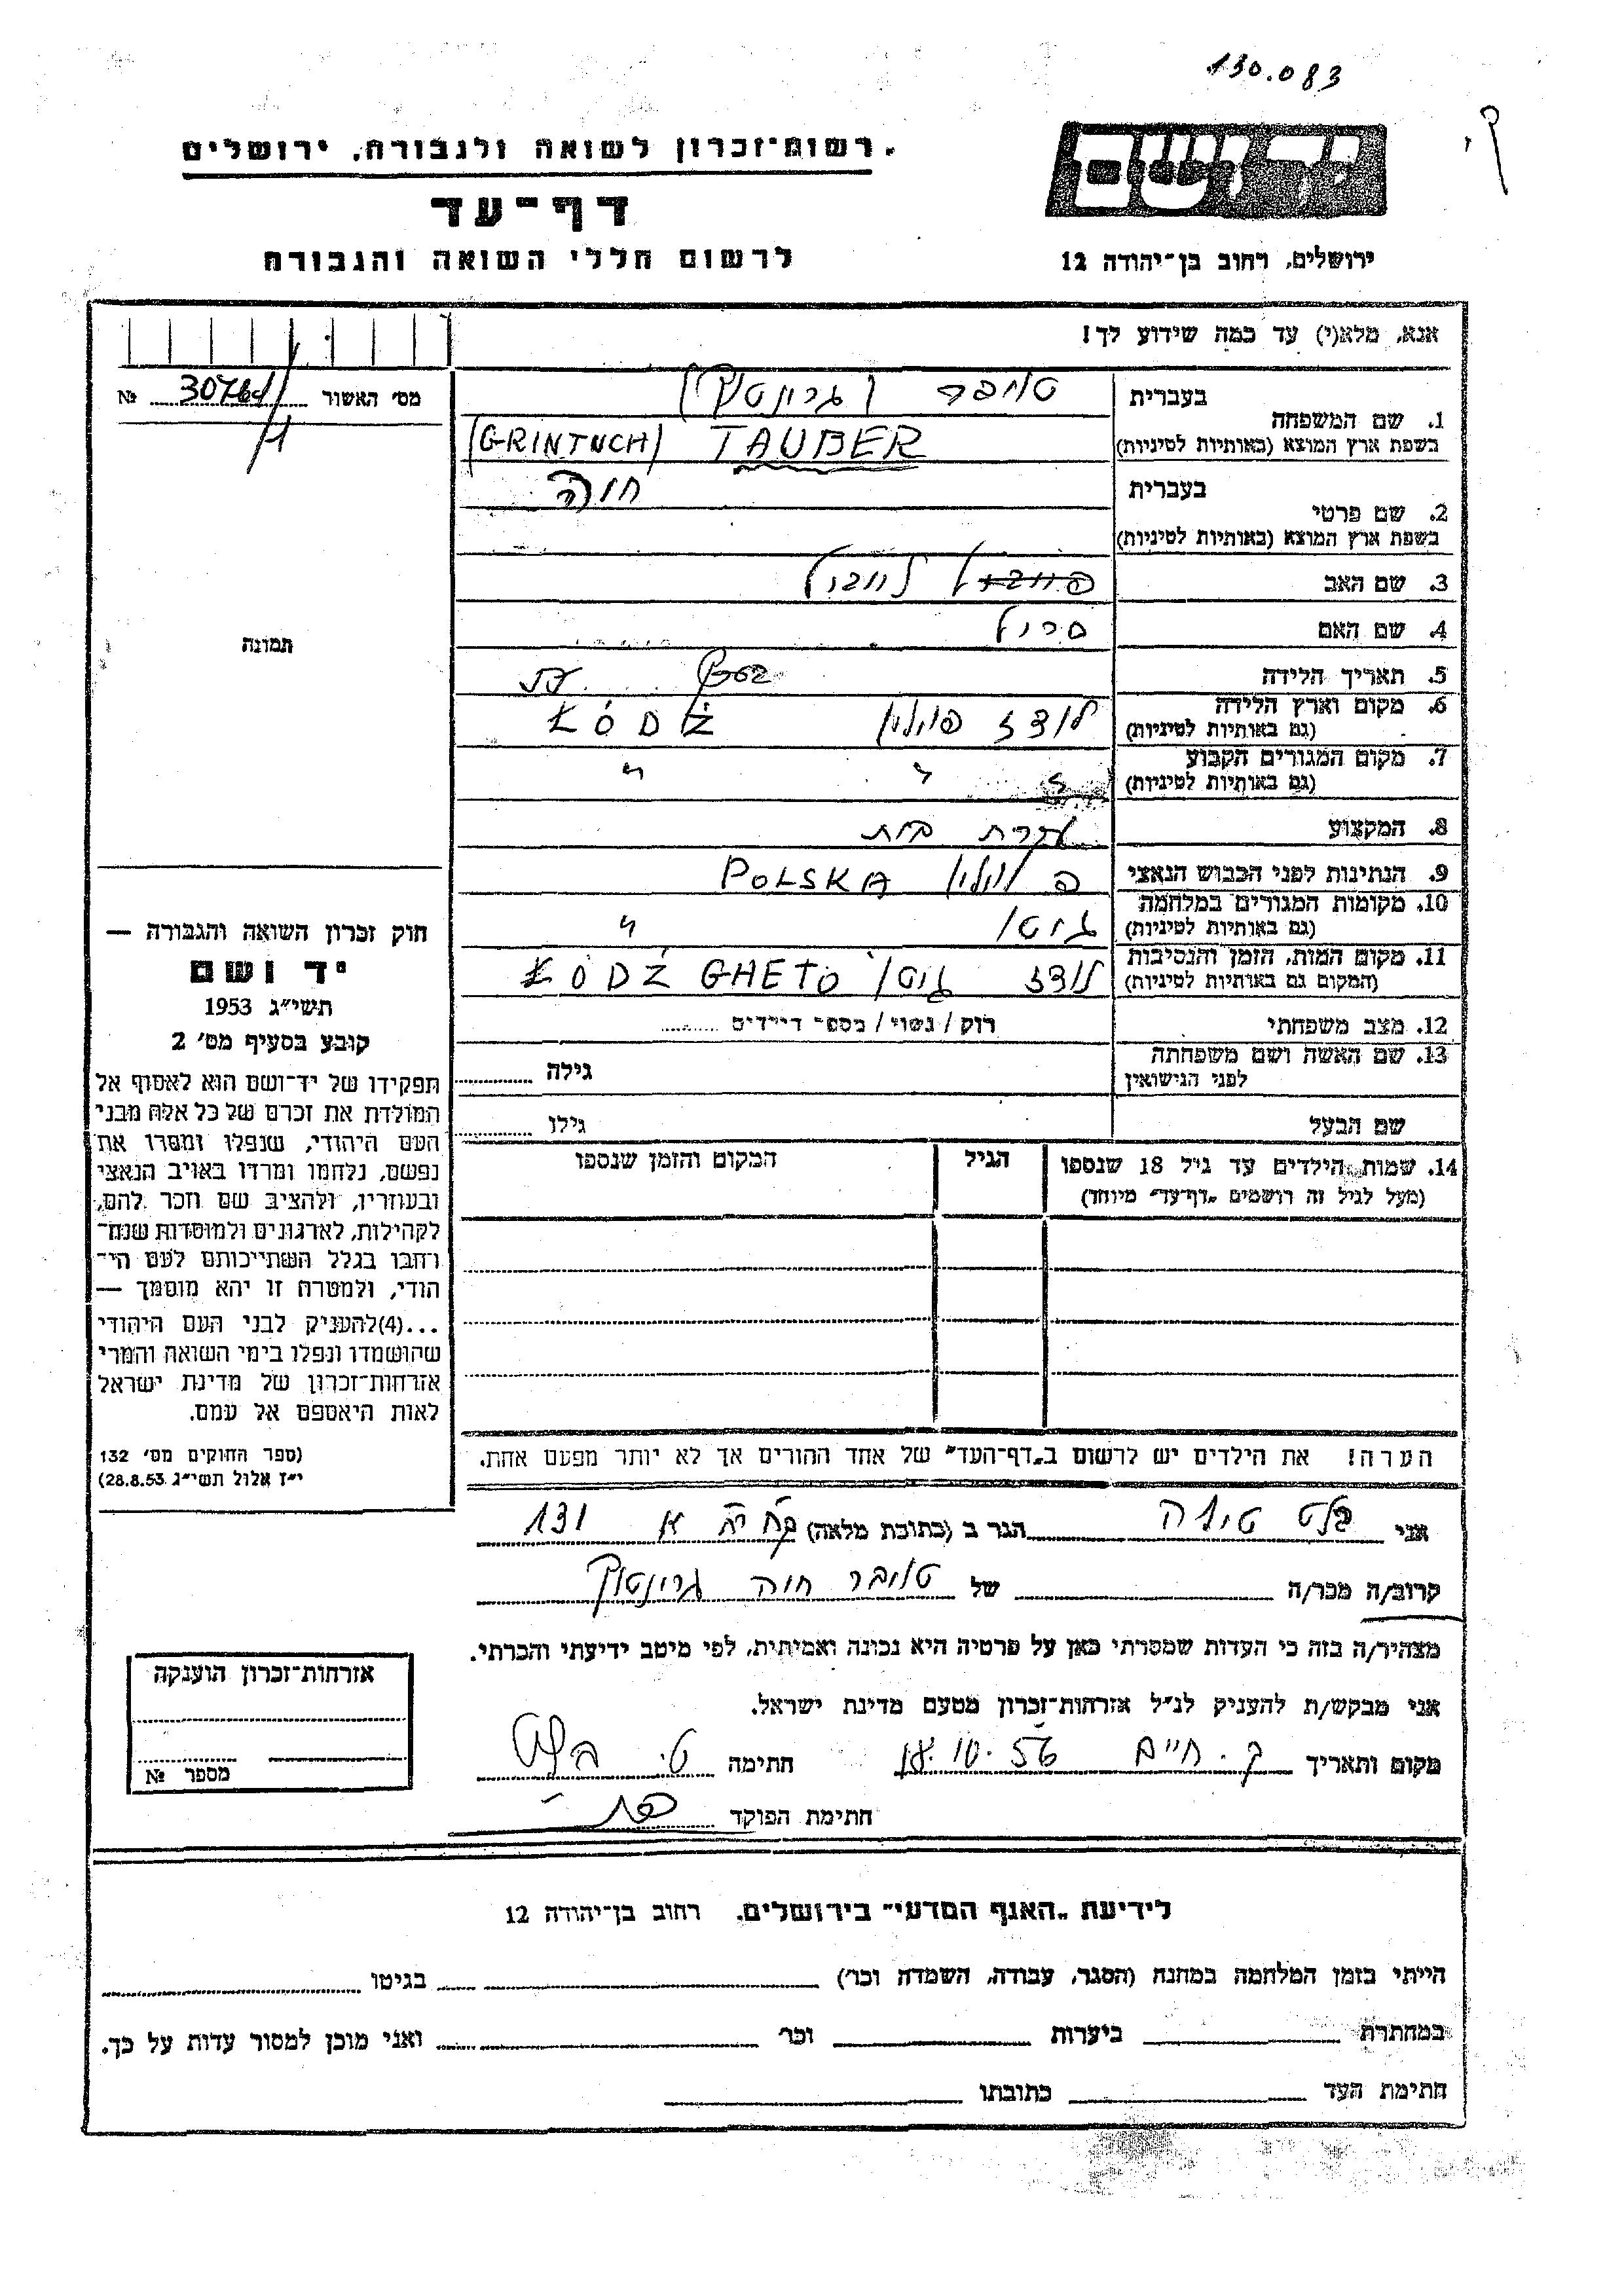 130.083
רשום־זכרון לשואה ולגבורה, ירושלים
דף־עד
לרשום חללי השואה והגבורה
יד ושם
ירושלים, רחוב בן־יהודה 12
אנא, מלא(י) עד כמה שידוע לך!
מס' האשור № 
1. שם המשפחה בעברית טאובר (גרינטוך)
בשפת ארץ המוצא (באותיות לטיניות) (GRINTUCH) TAUBER
2. שם פרטי בעברית חוה
בשפת ארץ המוצא (באותיות לטיניות)
3. שם האב
4. שם האם
5. תאריך הלידה
6. מקום וארץ הלידה (גם באותיות לטיניות) לודז פולין ŁÓDŹ
7. מקום המגורים הקבוע (גם באותיות לטיניות) " " "
8. המקצוע עקרת בית
9. הנתינות לפני הכבוש הנאצי פולין POLSKA
10. מקומות המגורים במלחמה (גם באותיות לטיניות) גיטו "
11. מקום המות, הזמן והנסיבות (המקום גם באותיות לטיניות) לודז גיטו ŁÓDŹ GHETO
12. מצב משפחתי רוק / נשוי / מספר הילדים
13. שם האשה ושם משפחתה לפני הנישואין גילה
שם הבעל גילו
14. שמות הילדים עד גיל 18 שנספו (מעל לגיל זה רושמים „דף־עד" מיוחד) הגיל המקום והזמן שנספו
הערה! את הילדים יש לרשום ב„דף־העד" של אחד ההורים אך לא יותר מפעם אחת.
תמונה
חוק זכרון השואה והגבורה —
יד ושם
תשי"ג 1953
קובע בסעיף מס' 2
תפקידו של יד־ושם הוא לאסוף אל
המולדת את זכרם של כל אלה מבני
העם היהודי, שנפלו ומסרו את
נפשם, נלחמו ומרדו באויב הנאצי
ובעוזריו, ולהציב שם וזכר להם,
לקהילות, לארגונים ולמוסדות שנח־
רבו בגלל השתייכותם לעם הי־
הודי, ולמטרה זו יהא מוסמך —
...(4)להעניק לבני העם היהודי
שהושמדו ונפלו בימי השואה והמרי
אזרחות־זכרון של מדינת ישראל
לאות היאספם אל עמם.
(ספר החוקים מס' 132
י"ז אלול תשי"ג 28.8.53)
אני בלט טובה הגר ב (כתובת מלאה) 131
קרוב/ה מכר/ה של טאובר חוה גרינטוך
מצהיר/ה בזה כי העדות שמסרתי כאן על פרטיה היא נכונה ואמיתית, לפי מיטב ידיעתי והכרתי.
אני מבקש/ת להעניק לנ"ל אזרחות־זכרון מטעם מדינת ישראל.
מקום ותאריך ק. חיים 10.56 חתימה ט. בלט
חתימת הפוקד
אזרחות־זכרון הוענקה
מספר №
לידיעת „האגף המדעי" בירושלים, רחוב בן־יהודה 12
הייתי בזמן המלחמה במחנה (הסגר, עבודה, השמדה וכו') בגיטו
במחתרת ביערות וכו' ואני מוכן למסור עדות על כך.
חתימת העד כתובתו